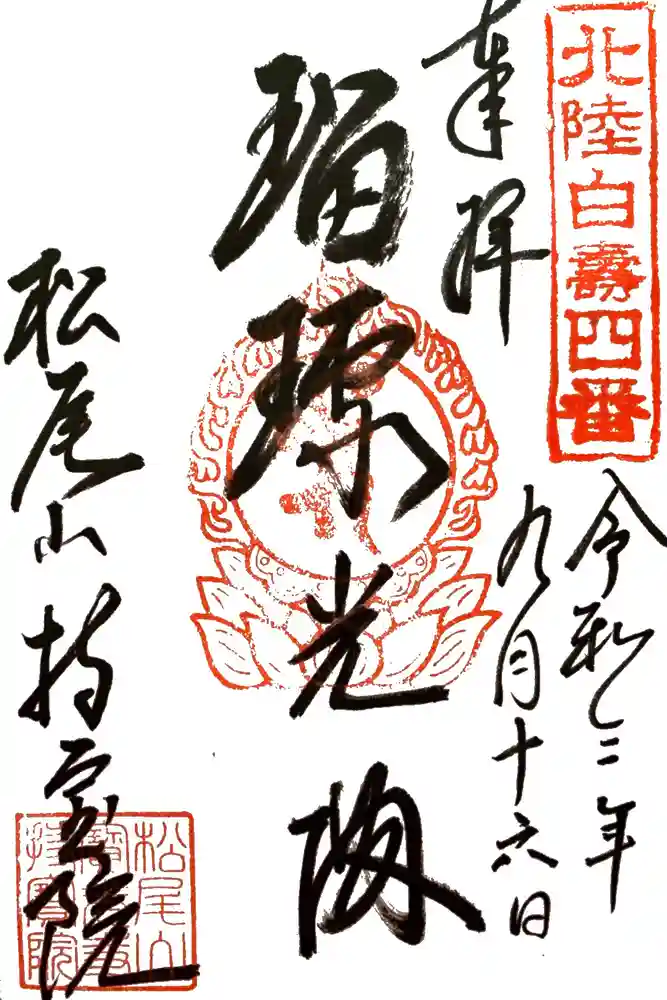 北陸白壽四番
奉拝
令和三年
九月十六日
瑠璃光
松尾山 持宝院
松尾山
持寶院